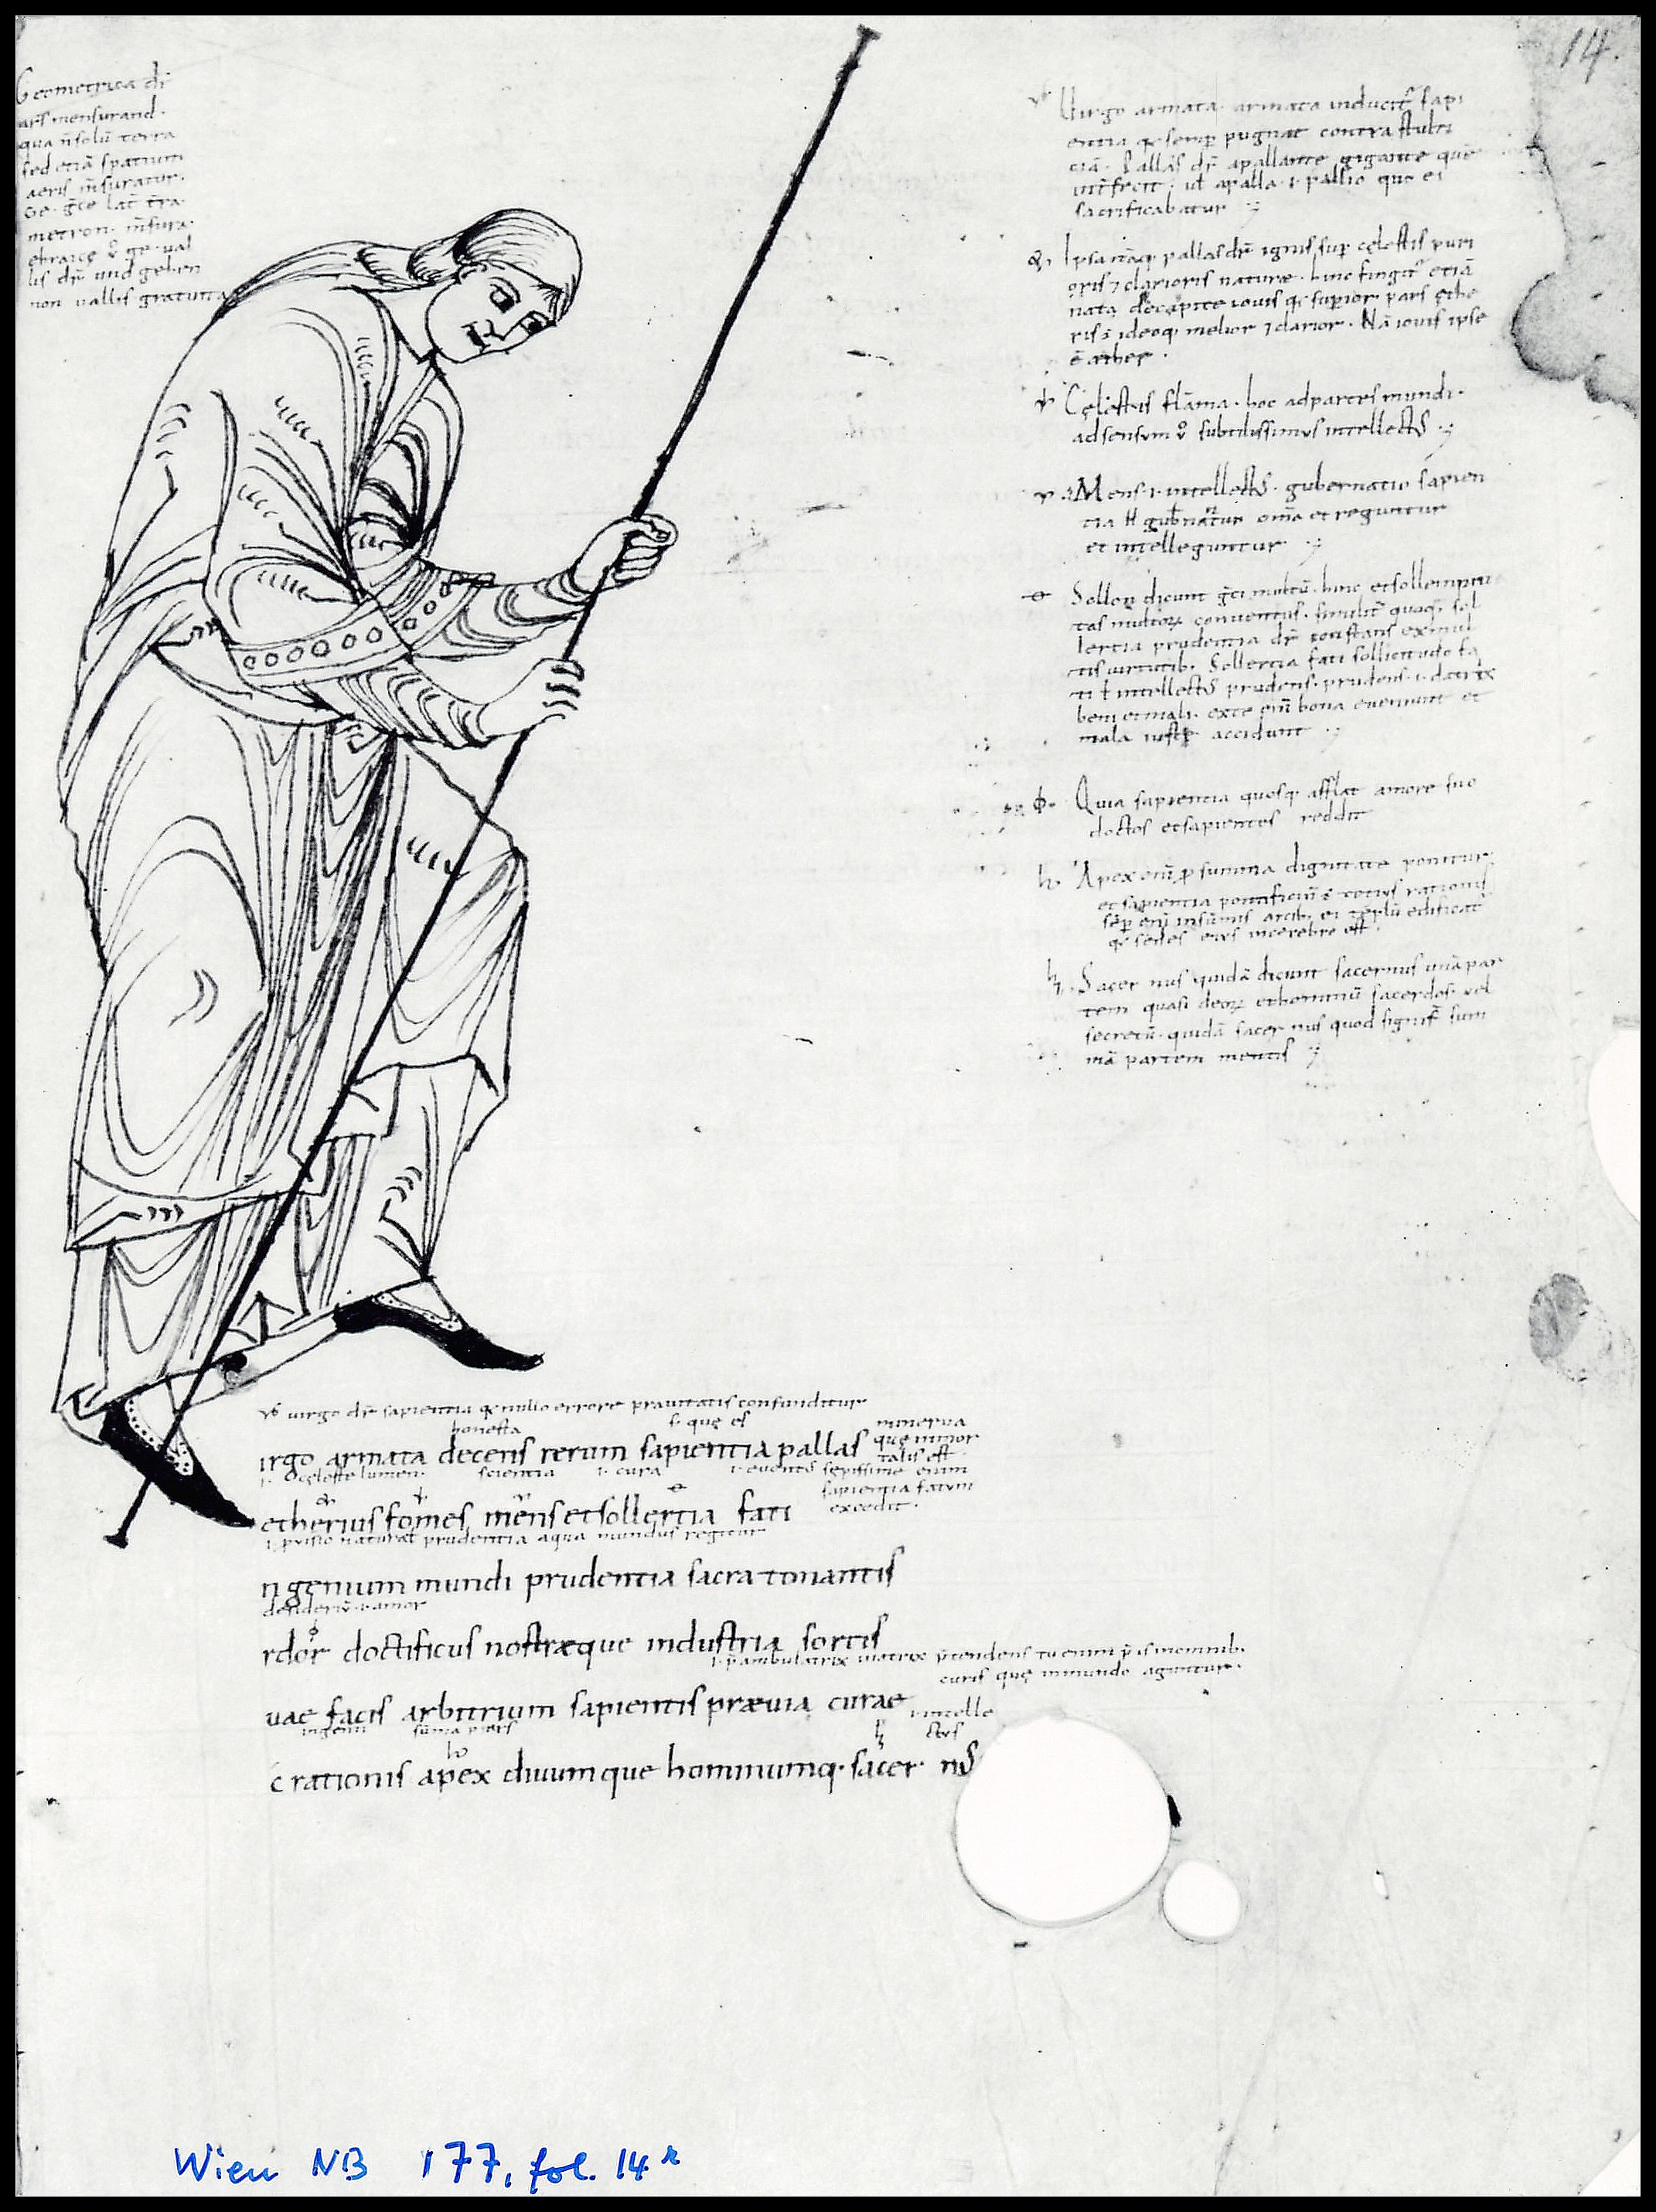 14.
Geometrica dr̄
ars mensurand.
qua n̄ solū terra
sed etiā spatium
aeris m̄suratur.
Ge. gr̄ce lat̄ t̄ra.
metron. m̄sura.
ebraicę ge. ual
lis dr̄ und gehen
non uallis gratuita
Uirgo armata. armata inducit᷒ sapi
entia q semp̲ pugnat contra stulti
ciā. Pallas dr̄ apallante gigante quē
int̄fecit. ut apalla .i. pallio quo ei
sacrificabatur
Ipsa nāq pallas dr̄ ignis sup̲ cęlestis puri
oris ⁊ clarioris naturae. hinc fingit᷒ etiā
nata decapite iouis q superior pars ęthe
ris ē ideoq melior ⁊ clarior. Nā iouis ipse
ē aether.
Cęlestis flāma. hoc adpartes mundi.
adsensum subtilissimus intellectus
Mens .i. intellectus. gubernatio sapien
tia gub̄natur om̄a et reguntur
et intelleguntur
Sollon dicunt gr̄ci multū. hinc et sollempni
tas multorum conuentus. similit᷒ quoq sol
lertia prudentia dr̄ constans ex mul
tis uirtutib. Sollertia fati sollicitudo fa
ti intellectus prudens. prudens .i. datrix
boni et mali. ex te enī bona eueniunt et
mala accidunt
Quia sapientia quosq afflat amore suo
doctos et sapientes reddit
Apex enī p summa dignitate ponitur.
et sapientia pontificiū ē totius rationis
sēp enī insūmis arcib. ei tēplū edificat᷒
q sedes eius incerebro est.
Sacer nus quidā dicunt sacernus unā par
tem quasi deorum et hominū sacerdos. uel
secretū. quidā sacer nus quod signif̄ sum
mā partem mentis
uirgo dr̄ sapientia q nullo errore prauitatis confunditur
honesta s. quę es minerua
irgo armata decens rerum sapientia pallas quę inmor
talis est
.i. o cęleste lumen. scientia .i. cura .i. euentus sępissime enim
sapientia fatum
etherius fomes mens et sollertia fati excedit.
.i. naturał prudentia a qua mundus regitur
ngenium mundi prudentia sacra tonantis
desideriū .i. amor
rdor doctificus nostraeque industria sortis
.i. p̄ambulatrix p̄tendens tu enim p̄is in omnib.
curis quę inmundo aguntur.
uae facis arbitrium sapientis praeuia curae
ingenii sūma pars .i. intelle
ctus
c rationis apex diuumque hominumq. sacer nus
Wien NB 177, fol. 14r